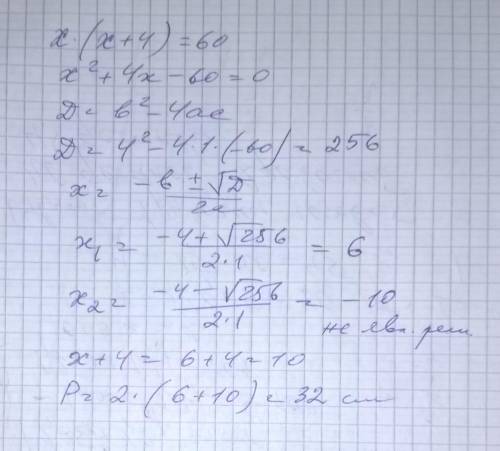 x·(x+4)=60
x²+4x-60=0
D=b²-4ac
D=4²-4·1·(-60)=256
x=(-b±√D)/2a
x₁=(-4+√256)/2·1=6
x₂=(-4-√256)/2·1=-10
не явл. реш.
x+4=6+4=10
P=2·(6+10)=32 см